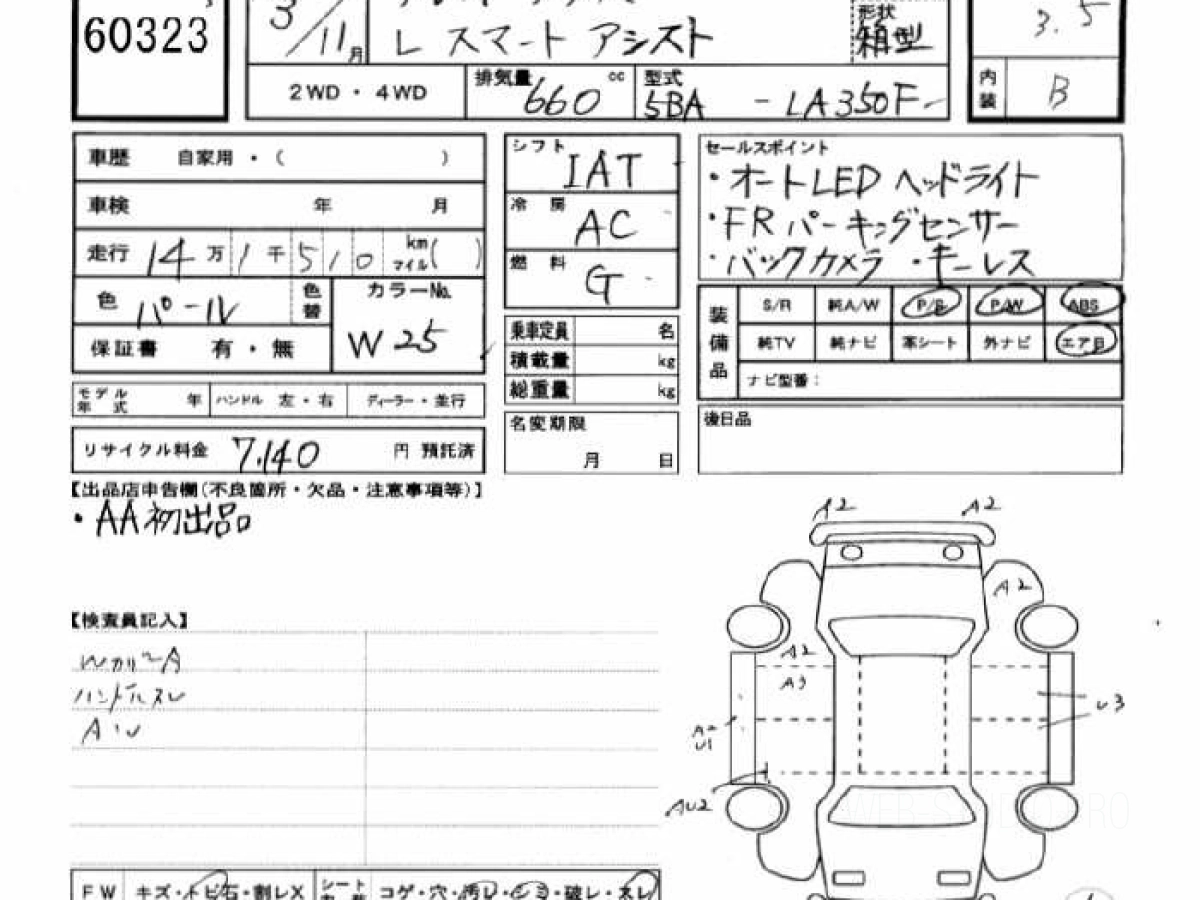 60323
3/11月
L スマート アシスト
形状
箱型
3.5
2WD・4WD
排気量 660 cc
型式 5BA - LA350F-
内装 B
車歴 自家用・( )
車検 年 月
走行 14万1千510 km マイル( )
色 パール 色替
カラーNo. W25
保証書 有・無
モデル年式 年 ハンドル 左・右 ディーラー・並行
リサイクル料金 7,140 円 預託済
シフト IAT
冷房 AC
燃料 G
乗車定員 名
積載量 kg
総重量 kg
名変期限
月 日
セールスポイント
・オートLED ヘッドライト
・FRパーキングセンサー
・バックカメラ ・キーレス
装備品
S/R 純A/W P/S P/W ABS
純TV 純ナビ 革シート 外ナビ エアB
ナビ型番:
後日品
【出品店申告欄(不良箇所・欠品・注意事項等)】
・AA初出品。
【検査員記入】
ハンドルスレ
A・U
A2 A2
A2
A2
A3
A2
U1
U3
AU2
FW キズ・トビ石・割レX シート コゲ・穴・汚レ・シミ・破レ・スレ